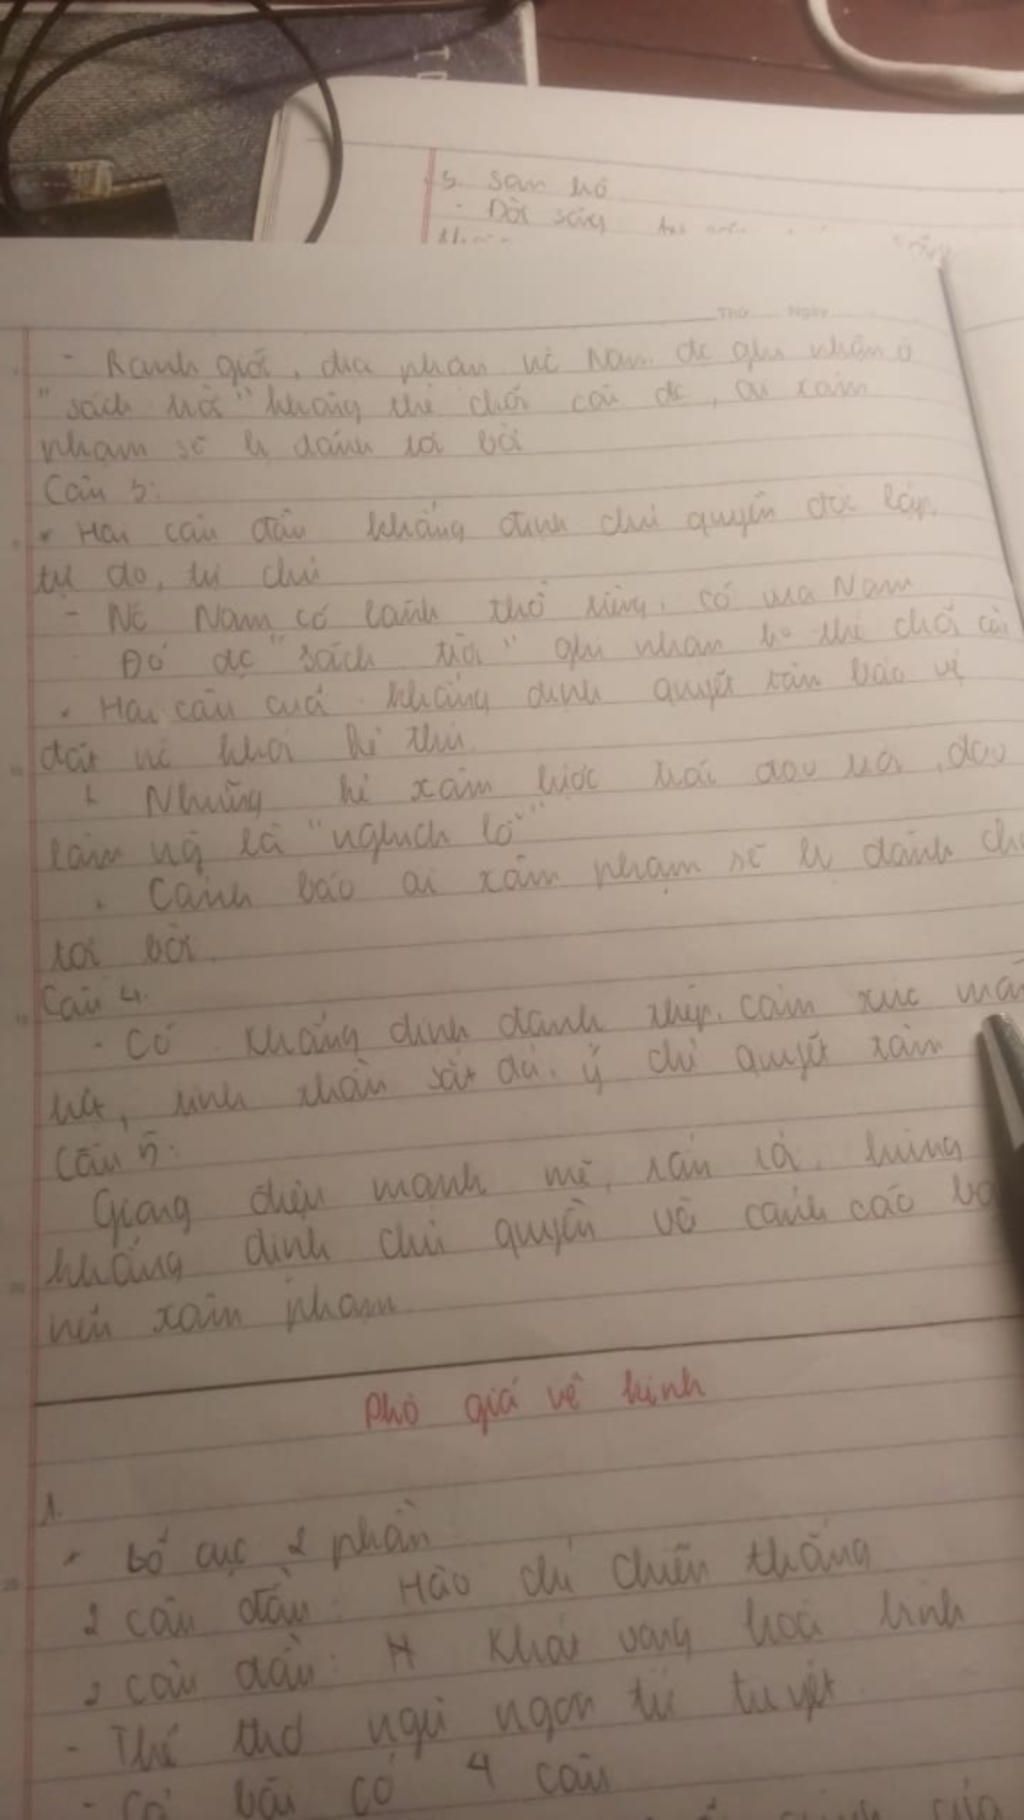 5. San hô
- Đời sống
Thứ Ngày
- Ranh giới, địa phận nc Nam đc ghi nhận ở
"sách trời" không thể chối cãi đc, ai xâm
phạm sẽ b đánh tơi bời
Câu 3:
* Hai câu đầu khẳng định chủ quyền độc lập,
tự do, tự chủ
- Nc Nam có lãnh thổ riêng, có vua Nam
Đó đc "sách trời" ghi nhận ko thể chối cãi
* Hai câu cuối khẳng định quyết tâm bảo vệ
đất nc khỏi kẻ thù
+ Những kẻ xâm lược trái đạo trời, đạo
làm ng là "nghịch lỗ"
+ Cảnh báo ai xâm phạm sẽ b đánh cho
tơi bời.
Câu 4.
- Có khẳng định đanh thép, cảm xúc mãnh
liệt, tinh thần sắt đá, ý chí quyết tâm
Câu 5:
Giọng điệu mạnh mẽ, rắn rỏi, hùng
khẳng định chủ quyền và cảnh cáo
nếu xâm phạm
Phò giá về kinh
1.
* Bố cục 2 phần
2 câu đầu: Hào chí chiến thắng
2 câu đầu: Khát vọng hoà bình
- Thể thơ ngũ ngôn tứ tuyệt
- Cả bài có 4 câu